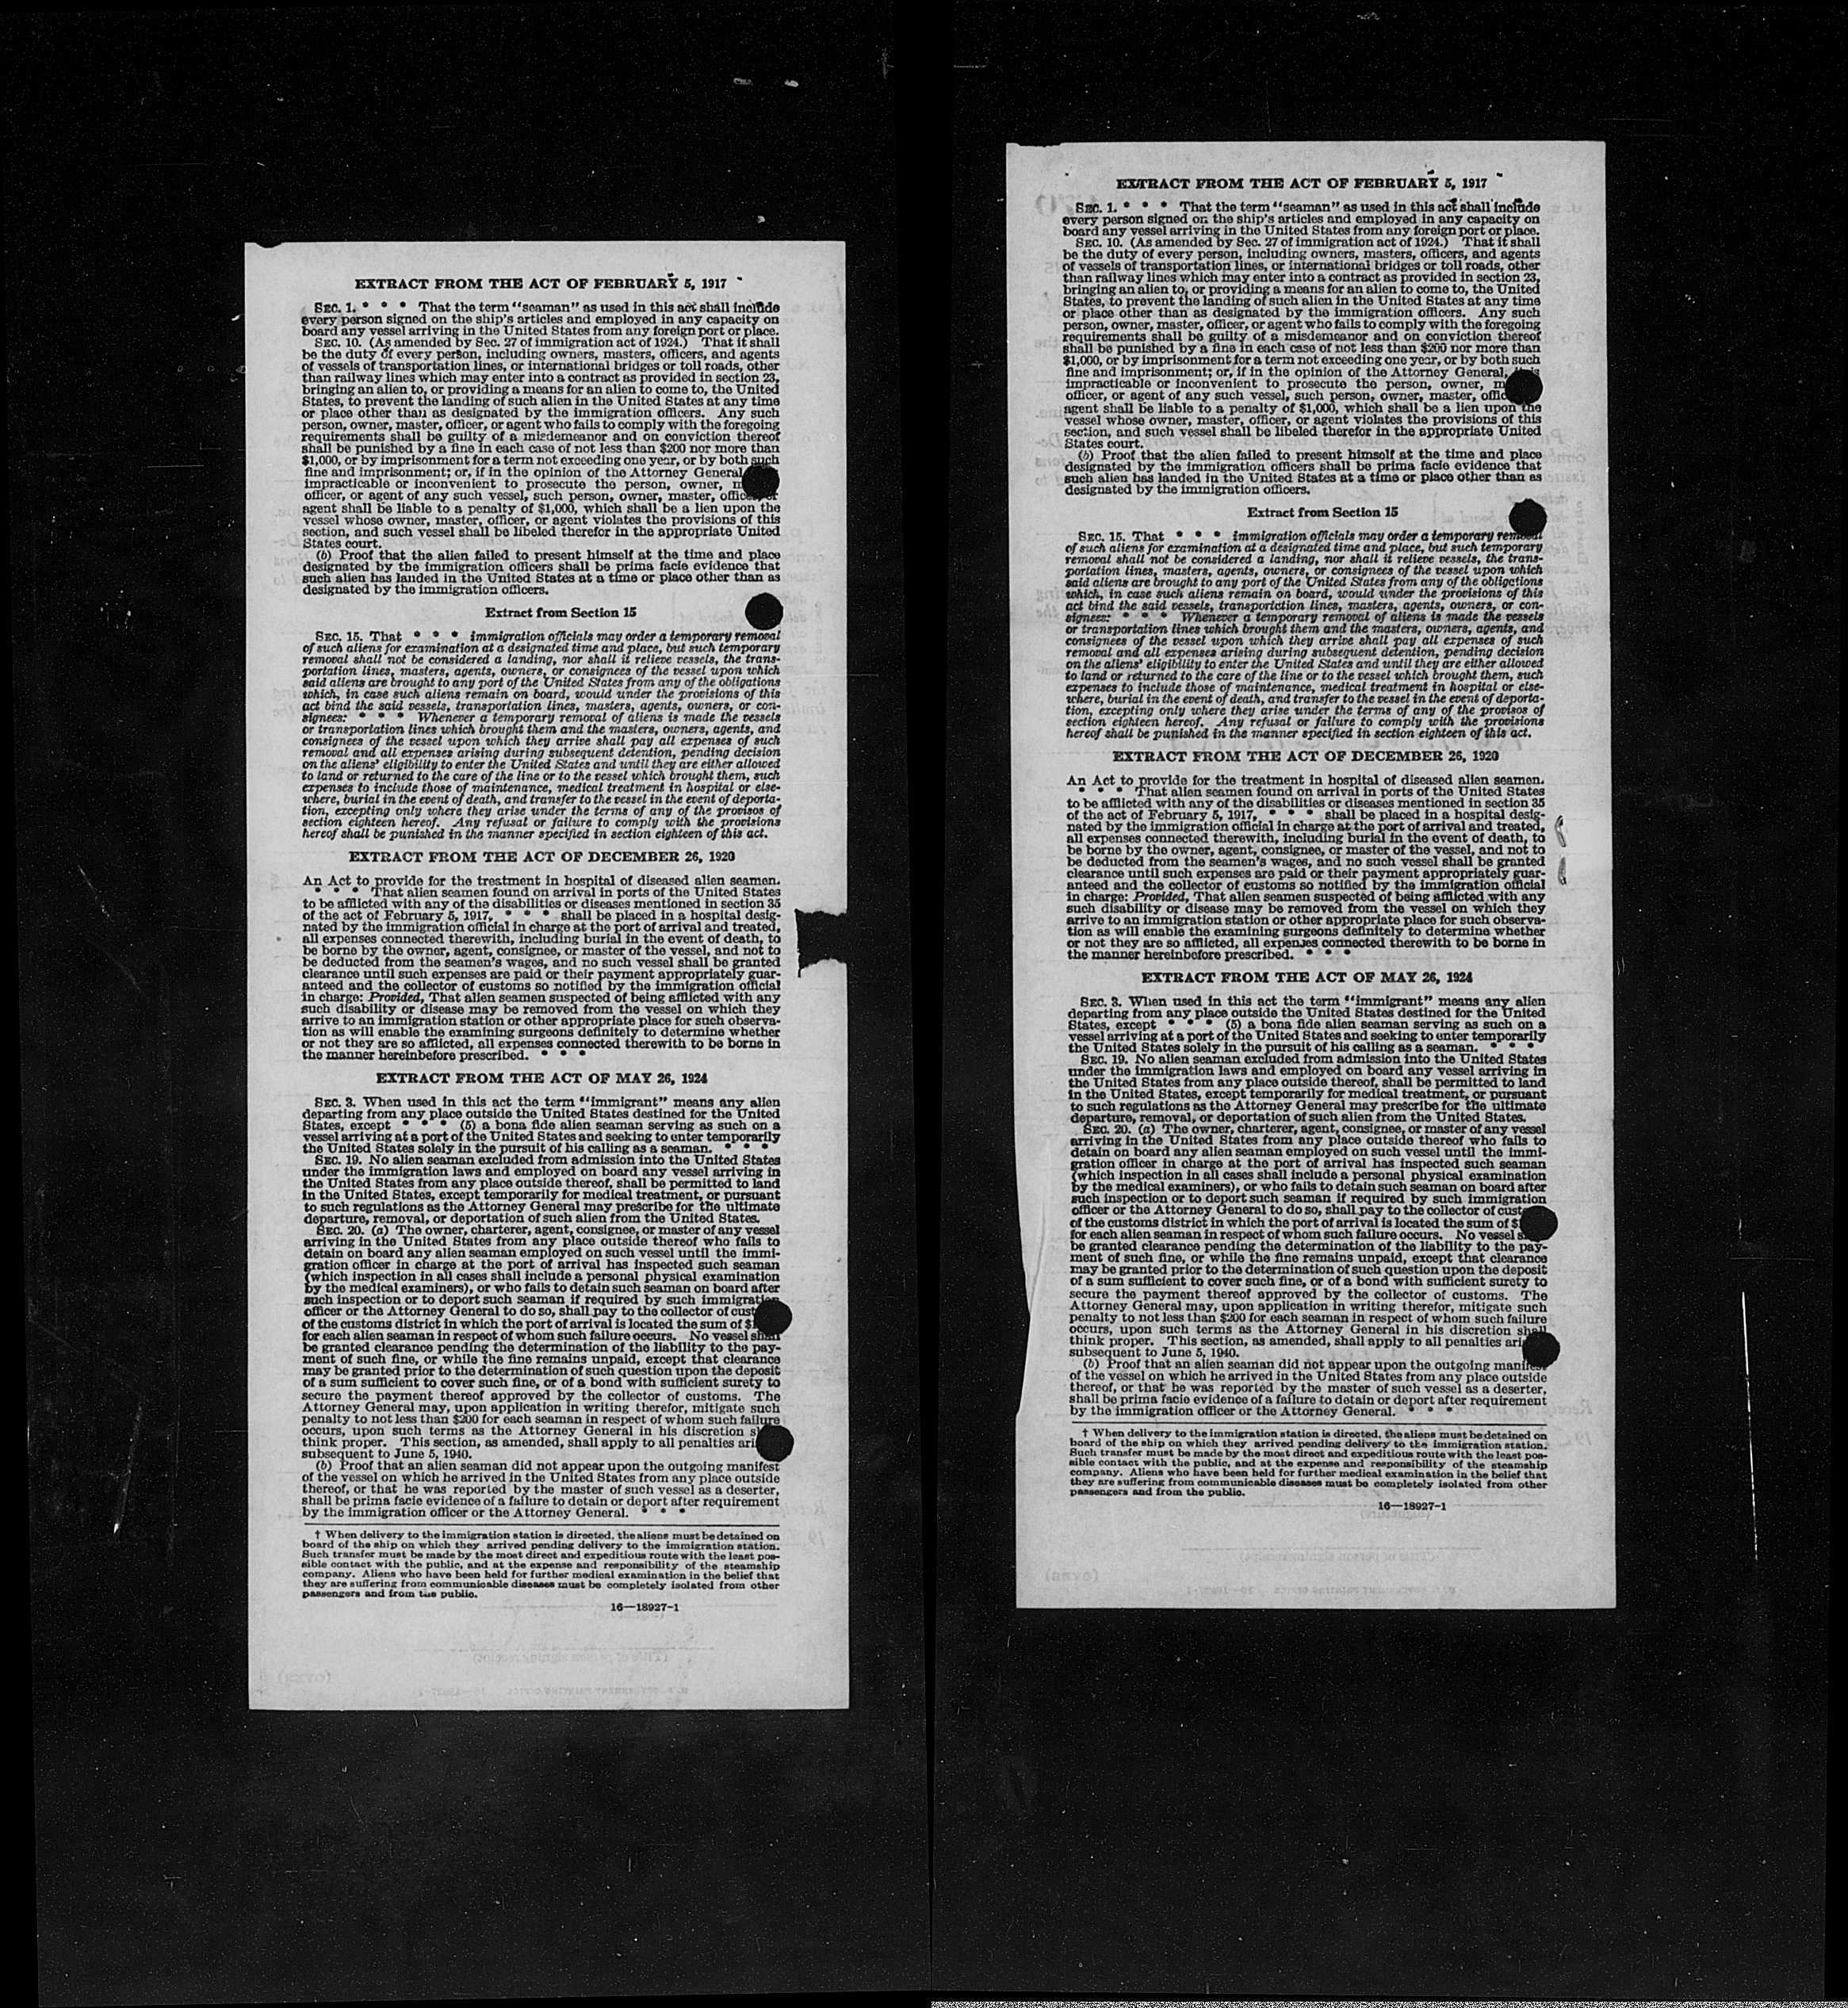 EXTRACT FROM THE ACT OF FEBRUARY 5, 1917
SEC. 1. * * * That the term "seaman" as used in this act shall include
every person signed on the ship's articles and employed in any capacity on
board any vessel arriving in the United States from any foreign port or place.
SEC. 10. (As amended by Sec. 27 of immigration act of 1924.) That it shall
be the duty of every person, including owners, masters, officers, and agents
of vessels of transportation lines, or international bridges or toll roads, other
than railway lines which may enter into a contract as provided in section 23,
bringing an alien to, or providing a means for an alien to come to, the United
States, to prevent the landing of such alien in the United States at any time
or place other than as designated by the immigration officers. Any such
person, owner, master, officer, or agent who fails to comply with the foregoing
requirements shall be guilty of a misdemeanor and on conviction thereof
shall be punished by a fine in each case of not less than $200 nor more than
$1,000, or by imprisonment for a term not exceeding one year, or by both such
fine and imprisonment; or, if in the opinion of the Attorney General
impracticable or inconvenient to prosecute the person, owner,
officer, or agent of any such vessel, such person, owner, master,
agent shall be liable to a penalty of $1,000, which shall be a lien upon the
vessel whose owner, master, officer, or agent violates the provisions of this
section, and such vessel shall be libeled therefor in the appropriate United
States court.
(b) Proof that the alien failed to present himself at the time and place
designated by the immigration officers shall be prima facie evidence that
such alien has landed in the United States at a time or place other than as
designated by the immigration officers.
Extract from Section 15
SEC. 15. That * * * immigration officials may order a temporary removal
of such aliens for examination at a designated time and place, but such temporary
removal shall not be considered a landing, nor shall it relieve vessels, the trans-
portation lines, masters, agents, owners, or consignees of the vessel upon which
said aliens are brought to any port of the United States from any of the obligations
which, in case such aliens remain on board, would under the provisions of this
act bind the said vessels, transportation lines, masters, agents, owners, or con-
signees: * * * Whenever a temporary removal of aliens is made the vessels
or transportation lines which brought them and the masters, owners, agents, and
consignees of the vessel upon which they arrive shall pay all expenses of such
removal and all expenses arising during subsequent detention, pending decision
on the aliens' eligibility to enter the United States and until they are either allowed
to land or returned to the care of the line or to the vessel which brought them, such
expenses to include those of maintenance, medical treatment in hospital or else-
where, burial in the event of death, and transfer to the vessel in the event of deporta-
tion, excepting only where they arise under the terms of any of the provisos of
section eighteen hereof. Any refusal or failure to comply with the provisions
hereof shall be punished in the manner specified in section eighteen of this act.
EXTRACT FROM THE ACT OF DECEMBER 26, 1920
An Act to provide for the treatment in hospital of diseased alien seamen.
* * * That alien seamen found on arrival in ports of the United States
to be afflicted with any of the disabilities or diseases mentioned in section 35
of the act of February 5, 1917, * * * shall be placed in a hospital desig-
nated by the immigration official in charge at the port of arrival and treated,
all expenses connected therewith, including burial in the event of death, to
be borne by the owner, agent, consignee, or master of the vessel, and not to
be deducted from the seamen's wages, and no such vessel shall be granted
clearance until such expenses are paid or their payment appropriately guar-
anteed and the collector of customs so notified by the immigration official
in charge: Provided, That alien seamen suspected of being afflicted with any
such disability or disease may be removed from the vessel on which they
arrive to an immigration station or other appropriate place for such observa-
tion as will enable the examining surgeons definitely to determine whether
or not they are so afflicted, all expenses connected therewith to be borne in
the manner hereinbefore prescribed. * * *
EXTRACT FROM THE ACT OF MAY 26, 1924
SEC. 3. When used in this act the term "immigrant" means any alien
departing from any place outside the United States destined for the United
States, except * * * (5) a bona fide alien seaman serving as such on a
vessel arriving at a port of the United States and seeking to enter temporarily
the United States solely in the pursuit of his calling as a seaman. * * *
SEC. 19. No alien seaman excluded from admission into the United States
under the immigration laws and employed on board any vessel arriving in
the United States from any place outside thereof, shall be permitted to land
in the United States, except temporarily for medical treatment, or pursuant
to such regulations as the Attorney General may prescribe for the ultimate
departure, removal, or deportation of such alien from the United States.
SEC. 20. (a) The owner, charterer, agent, consignee, or master of any vessel
arriving in the United States from any place outside thereof who fails to
detain on board any alien seaman employed on such vessel until the immi-
gration officer in charge at the port of arrival has inspected such seaman
(which inspection in all cases shall include a personal physical examination
by the medical examiners), or who fails to detain such seaman on board after
such inspection or to deport such seaman if required by such immigration
officer or the Attorney General to do so, shall pay to the collector of
of the customs district in which the port of arrival is located the sum of
for each alien seaman in respect of whom such failure occurs. No vessel shall
be granted clearance pending the determination of the liability to the pay-
ment of such fine, or while the fine remains unpaid, except that clearance
may be granted prior to the determination of such question upon the deposit
of a sum sufficient to cover such fine, or of a bond with sufficient surety to
secure the payment thereof approved by the collector of customs. The
Attorney General may, upon application in writing therefor, mitigate such
penalty to not less than $200 for each seaman in respect of whom such failure
occurs, upon such terms as the Attorney General in his discretion
think proper. This section, as amended, shall apply to all penalties
subsequent to June 5, 1940.
(b) Proof that an alien seaman did not appear upon the outgoing manifest
of the vessel on which he arrived in the United States from any place outside
thereof, or that he was reported by the master of such vessel as a deserter,
shall be prima facie evidence of a failure to detain or deport after requirement
by the immigration officer or the Attorney General. * * *
† When delivery to the immigration station is directed, the aliens must be detained on
board of the ship on which they arrived pending delivery to the immigration station.
Such transfer must be made by the most direct and expeditious route with the least pos-
sible contact with the public, and at the expense and responsibility of the steamship
company. Aliens who have been held for further medical examination in the belief that
they are suffering from communicable diseases must be completely isolated from other
passengers and from the public.
16—18927-1
EXTRACT FROM THE ACT OF FEBRUARY 5, 1917
SEC. 1. * * * That the term "seaman" as used in this act shall include
every person signed on the ship's articles and employed in any capacity on
board any vessel arriving in the United States from any foreign port or place.
SEC. 10. (As amended by Sec. 27 of immigration act of 1924.) That it shall
be the duty of every person, including owners, masters, officers, and agents
of vessels of transportation lines, or international bridges or toll roads, other
than railway lines which may enter into a contract as provided in section 23,
bringing an alien to, or providing a means for an alien to come to, the United
States, to prevent the landing of such alien in the United States at any time
or place other than as designated by the immigration officers. Any such
person, owner, master, officer, or agent who fails to comply with the foregoing
requirements shall be guilty of a misdemeanor and on conviction thereof
shall be punished by a fine in each case of not less than $200 nor more than
$1,000, or by imprisonment for a term not exceeding one year, or by both such
fine and imprisonment; or, if in the opinion of the Attorney General,
impracticable or inconvenient to prosecute the person, owner,
officer, or agent of any such vessel, such person, owner, master,
agent shall be liable to a penalty of $1,000, which shall be a lien upon the
vessel whose owner, master, officer, or agent violates the provisions of this
section, and such vessel shall be libeled therefor in the appropriate United
States court.
(b) Proof that the alien failed to present himself at the time and place
designated by the immigration officers shall be prima facie evidence that
such alien has landed in the United States at a time or place other than as
designated by the immigration officers.
Extract from Section 15
SEC. 15. That * * * immigration officials may order a temporary removal
of such aliens for examination at a designated time and place, but such temporary
removal shall not be considered a landing, nor shall it relieve vessels, the trans-
portation lines, masters, agents, owners, or consignees of the vessel upon which
said aliens are brought to any port of the United States from any of the obligations
which, in case such aliens remain on board, would under the provisions of this
act bind the said vessels, transportation lines, masters, agents, owners, or con-
signees: * * * Whenever a temporary removal of aliens is made the vessels
or transportation lines which brought them and the masters, owners, agents, and
consignees of the vessel upon which they arrive shall pay all expenses of such
removal and all expenses arising during subsequent detention, pending decision
on the aliens' eligibility to enter the United States and until they are either allowed
to land or returned to the care of the line or to the vessel which brought them, such
expenses to include those of maintenance, medical treatment in hospital or else-
where, burial in the event of death, and transfer to the vessel in the event of deporta-
tion, excepting only where they arise under the terms of any of the provisos of
section eighteen hereof. Any refusal or failure to comply with the provisions
hereof shall be punished in the manner specified in section eighteen of this act.
EXTRACT FROM THE ACT OF DECEMBER 26, 1920
An Act to provide for the treatment in hospital of diseased alien seamen.
* * * That alien seamen found on arrival in ports of the United States
to be afflicted with any of the disabilities or diseases mentioned in section 35
of the act of February 5, 1917, * * * shall be placed in a hospital desig-
nated by the immigration official in charge at the port of arrival and treated,
all expenses connected therewith, including burial in the event of death, to
be borne by the owner, agent, consignee, or master of the vessel, and not to
be deducted from the seamen's wages, and no such vessel shall be granted
clearance until such expenses are paid or their payment appropriately guar-
anteed and the collector of customs so notified by the immigration official
in charge: Provided, That alien seamen suspected of being afflicted with any
such disability or disease may be removed from the vessel on which they
arrive to an immigration station or other appropriate place for such observa-
tion as will enable the examining surgeons definitely to determine whether
or not they are so afflicted, all expenses connected therewith to be borne in
the manner hereinbefore prescribed. * * *
EXTRACT FROM THE ACT OF MAY 26, 1924
SEC. 3. When used in this act the term "immigrant" means any alien
departing from any place outside the United States destined for the United
States, except * * * (5) a bona fide alien seaman serving as such on a
vessel arriving at a port of the United States and seeking to enter temporarily
the United States solely in the pursuit of his calling as a seaman. * * *
SEC. 19. No alien seaman excluded from admission into the United States
under the immigration laws and employed on board any vessel arriving in
the United States from any place outside thereof, shall be permitted to land
in the United States, except temporarily for medical treatment, or pursuant
to such regulations as the Attorney General may prescribe for the ultimate
departure, removal, or deportation of such alien from the United States.
SEC. 20. (a) The owner, charterer, agent, consignee, or master of any vessel
arriving in the United States from any place outside thereof who fails to
detain on board any alien seaman employed on such vessel until the immi-
gration officer in charge at the port of arrival has inspected such seaman
(which inspection in all cases shall include a personal physical examination
by the medical examiners), or who fails to detain such seaman on board after
such inspection or to deport such seaman if required by such immigration
officer or the Attorney General to do so, shall pay to the collector of
of the customs district in which the port of arrival is located the sum of
for each alien seaman in respect of whom such failure occurs. No vessel
be granted clearance pending the determination of the liability to the pay-
ment of such fine, or while the fine remains unpaid, except that clearance
may be granted prior to the determination of such question upon the deposit
of a sum sufficient to cover such fine, or of a bond with sufficient surety to
secure the payment thereof approved by the collector of customs. The
Attorney General may, upon application in writing therefor, mitigate such
penalty to not less than $200 for each seaman in respect of whom such failure
occurs, upon such terms as the Attorney General in his discretion shall
think proper. This section, as amended, shall apply to all penalties
subsequent to June 5, 1940.
(b) Proof that an alien seaman did not appear upon the outgoing manifest
of the vessel on which he arrived in the United States from any place outside
thereof, or that he was reported by the master of such vessel as a deserter,
shall be prima facie evidence of a failure to detain or deport after requirement
by the immigration officer or the Attorney General. * * *
† When delivery to the immigration station is directed, the aliens must be detained on
board of the ship on which they arrived pending delivery to the immigration station.
Such transfer must be made by the most direct and expeditious route with the least pos-
sible contact with the public, and at the expense and responsibility of the steamship
company. Aliens who have been held for further medical examination in the belief that
they are suffering from communicable diseases must be completely isolated from other
passengers and from the public.
16—18927-1